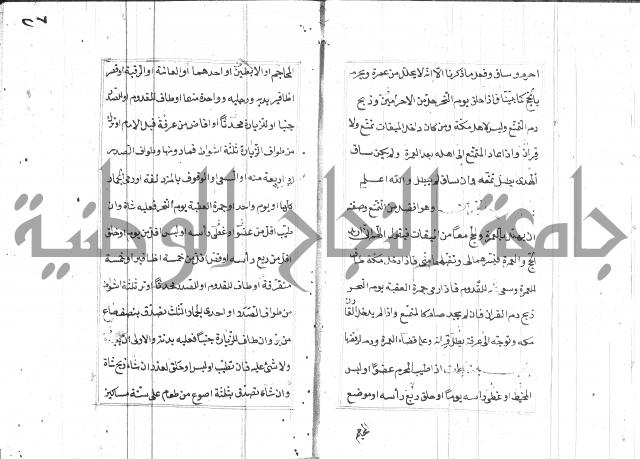 احرم وساق وفعل ما ذكرنا الا انه لا يحلل من عمرة ويحرم
بالحج كما بينا فاذا حلق يوم النحر حل من الاحرامين وذبح
دم التمتع وليس لاهل مكة ومن كان داخل الميقات تمتع ولا
قران واذا عاد المتمتع الى اهله بعد العمرة ولم يكن ساق
الهدى بطل تمتعه وان ساق لم يبطل والله اعلم
وهو افضل من التمتع وصفته
ان يهل بالعمرة والحج معا من الميقات فيقول اللهم اني اريد
الحج والعمرة فيسرهما لي وتقبلهما مني فاذا دخل مكة طاف
للعمرة وسعى للقدوم فاذا رمى جمرة العقبة يوم النحر
ذبح دم القران فان لم يجد صام كالمتمتع واذا لم يدخل القارن
مكة وتوجه الى عرفة بطل قرانه وعليه قضاء العمرة ودم لرفضها
اذا طيب المحرم عضوا او لبس
المخيط او غطى راسه يوما او حلق ربع رأسه او موضع
المحاجم او الابطين او احدهما او العانة او الرقبة او قص
اظافير يديه ورجليه او واحدة منها او طاف للقدوم او للصدر
جنبا او للزيارة محدثا او افاض من عرفة قبل الامام او ترك
من طواف الزيارة ثلثة اشواط فما دونها او طواف الصدر
او اربعة منه او السعي او الوقوف بالمزدلفة او رمي الجمار
كلها او يوم واحد او جمرة العقبة يوم النحر فعليه شاة وان
طيب اقل من عضو او غطى رأسه او لبس اقل من يوم او حلق
اقل من ربع رأسه او قص اقل من خمسة اظافير او خمسة
متفرقة او طاف للقدوم او للصدر محدثا او ترك ثلثة اشواط
من طواف الصدر او احدى الجمار الثلث تصدق بنصف صاع
من بر وان طاف للزيارة جنبا فعليه بدنة والاولى ان يعيد
ولا شئ عليه فان تطيب او لبس او حلق لعذر ان شاء ذبح شاة
وان شاء تصدق بثلثة اصوع من طعام على ستة مساكين
المحاجم
جامعة النجاح الوطنية